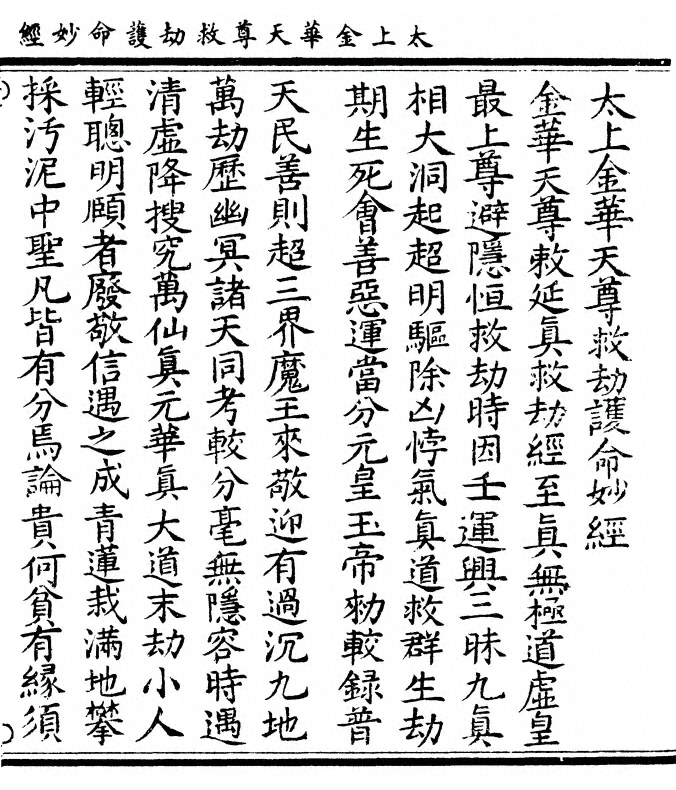 太上金華天尊救劫護命妙經
太上金華天尊救劫護命妙經
金華天尊敕延眞救劫經至眞無極道虛皇
最上尊避隱恒救劫時因壬運興三昧九眞
相大洞起超明驅除凶悖氣眞道救群生劫
期生死會善惡運當分元皇玉帝勑較録普
天民善則超三界魔王來敬迎有過沉九地
萬劫歷幽冥諸天同考較分毫無隱容時遇
清虛降搜究萬仙眞元華眞大道末劫小人
輕聰明願者廢敬信遇之成青蓮栽滿地攀
採汚泥中聖凡皆有分焉論貴何貧有緣須